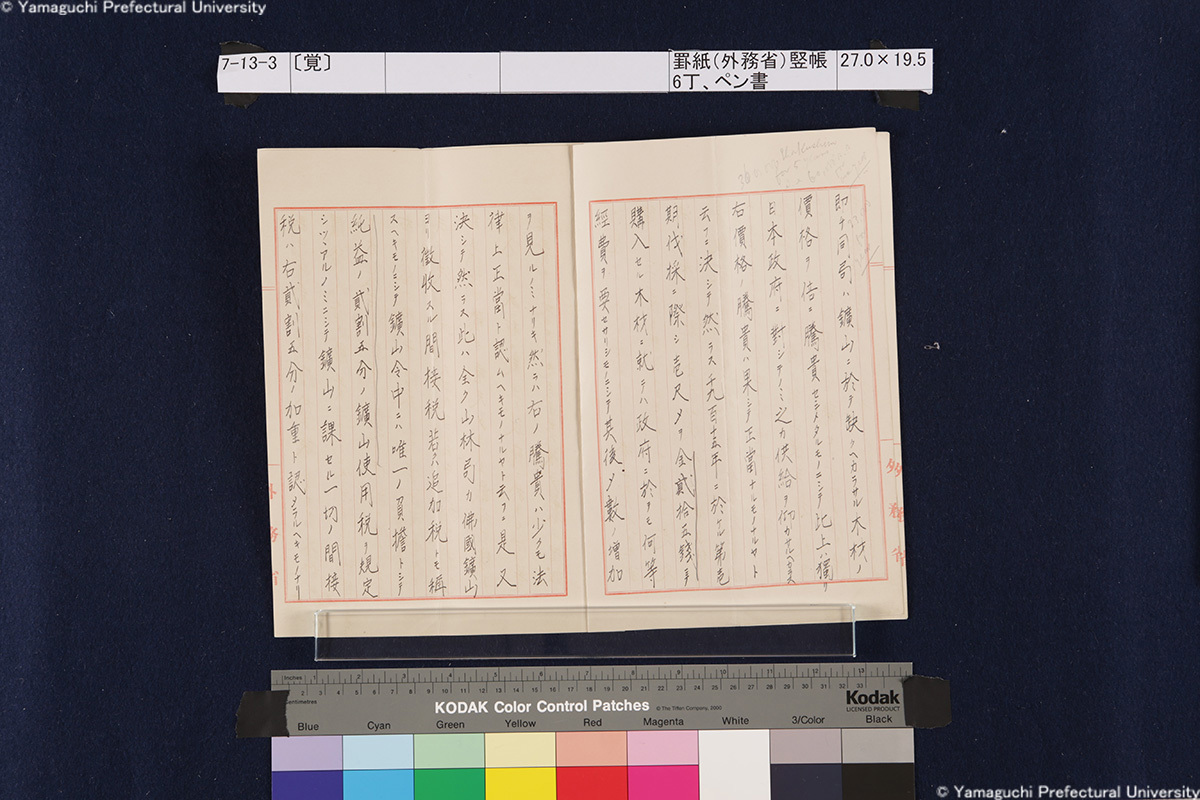 © Yamaguchi Prefectural University
7-13-3 〔覚〕 罫紙(外務省)竪帳 27.0×19.5
6丁、ペン書
即チ同局ハ鑛山ニ於テ缺クヘカラサル木材ノ
價格ヲ倍ニ騰貴セシメタルモノニシテ此上ハ獨リ
日本政府ニ對シテノミ之カ供給ヲ仰カサルヘカラス
右價格ノ騰貴ハ果シテ正當ナルモノナルヤト
云フニ決シテ然ラス千九百十五年ニ於ケル第壱
期伐採ニ際シ壱尺〆ヲ金貳拾五錢ニテ
購入セル木材ニ就テハ政府ニ於テモ何等
經費ヲ要セサリシモノニシテ其後〆數ノ増加
ヲ見ルノミナリキ然ラハ右ノ騰貴ハ少クモ法
律上正當ト認ムヘキモノナルヤト云フニ是又
決シテ然ラス此ハ全ク山林局カ佛國鑛山
ヨリ徴收スル間接税若クハ追加税トモ稱
スヘキモノニシテ鑛山令中ニハ唯一ノ負擔トシテ
純益ノ貳割五分ノ鑛山使用税ヲ規定
シツヽアルノミニシテ鑛山ニ課セル一切ノ間接
税ハ右貳割五分ノ加重ト認メラルヘキモノナリ
外務省
務省
Inches 1 2 3 4 5 6 7 8
Centimetres 2 3 4 5 6 7 8 9 10 11 12 13 14 15 16 17 18 19 20 21 22 23 24 25 26 27 28 29 30 31 32 33
KODAK Color Control Patches © The Tiffen Company, 2000
Kodak
LICENSED PRODUCT
Blue Cyan Green Yellow Red Magenta White 3/Color Black
© Yamaguchi Prefectural University